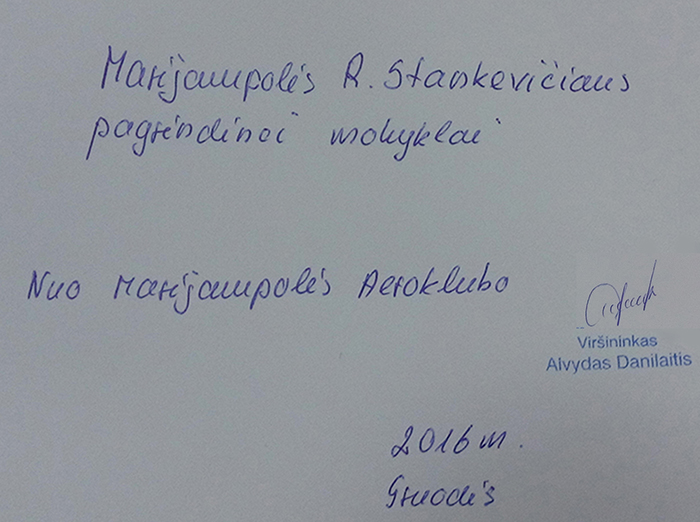 Marijampolės R. Stankevičiaus
pagrindinei mokyklai
Nuo Marijampolės Aeroklubo
Viršininkas
Alvydas Danilaitis
2016 m.
Gruodis